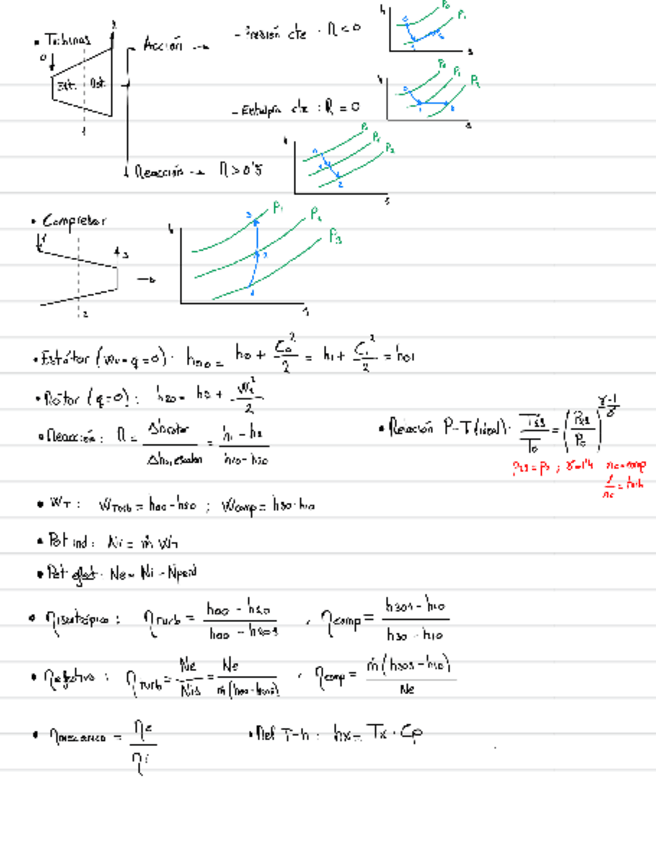 • Turbinas
0 2
Est. Rot.
1
Acción →
- Presión cte : R < 0
h P₀ P₁ s
- Entalpía cte : R = 0
h P₀ P₁ P₂ s
Reacción → R > 0'5
h P₀ P₁ P₂ s
• Compresor
1 3
2
h P₁ P₂ P₃
3
2
1
• Estátor (w = q = 0) : h₀₀ = h₀ + C₀²/2 = h₁ + C₁²/2 = h₀₁
• Rotor (q=0) : h₂₀ = h₂ + W₂²/2
• Reacción : R = Δh rotor / Δh escalón = h₁ - h₂ / h₁₀ - h₃₀
• Relación P-T (ideal) : T₂s/T₀ = (P₂s/P₀)^(γ-1/γ)
P₂s = P₂ ; γ = 1'4 rc = comp
1/rc = turb
• W_T : W_Turb = h₀₀ - h₂₀ ; W_comp = h₃₀ - h₁₀
• Pot ind : Ni = ṁ W_T
• Pot efect : Ne = Ni - Nperd
• η isentrópico : η_Turb = h₀₀ - h₂₀ / h₀₀ - h₂₀s , η_comp = h₃₀s - h₁₀ / h₃₀ - h₁₀
• η efectivo : η_Turb = Ne/Nis = Ne / ṁ(h₀₀ - h₂₀s) , η_comp = ṁ(h₃₀s - h₁₀) / Ne
• η mecánico = ηe / ηi
• Rel T-h : hx = Tx · Cp